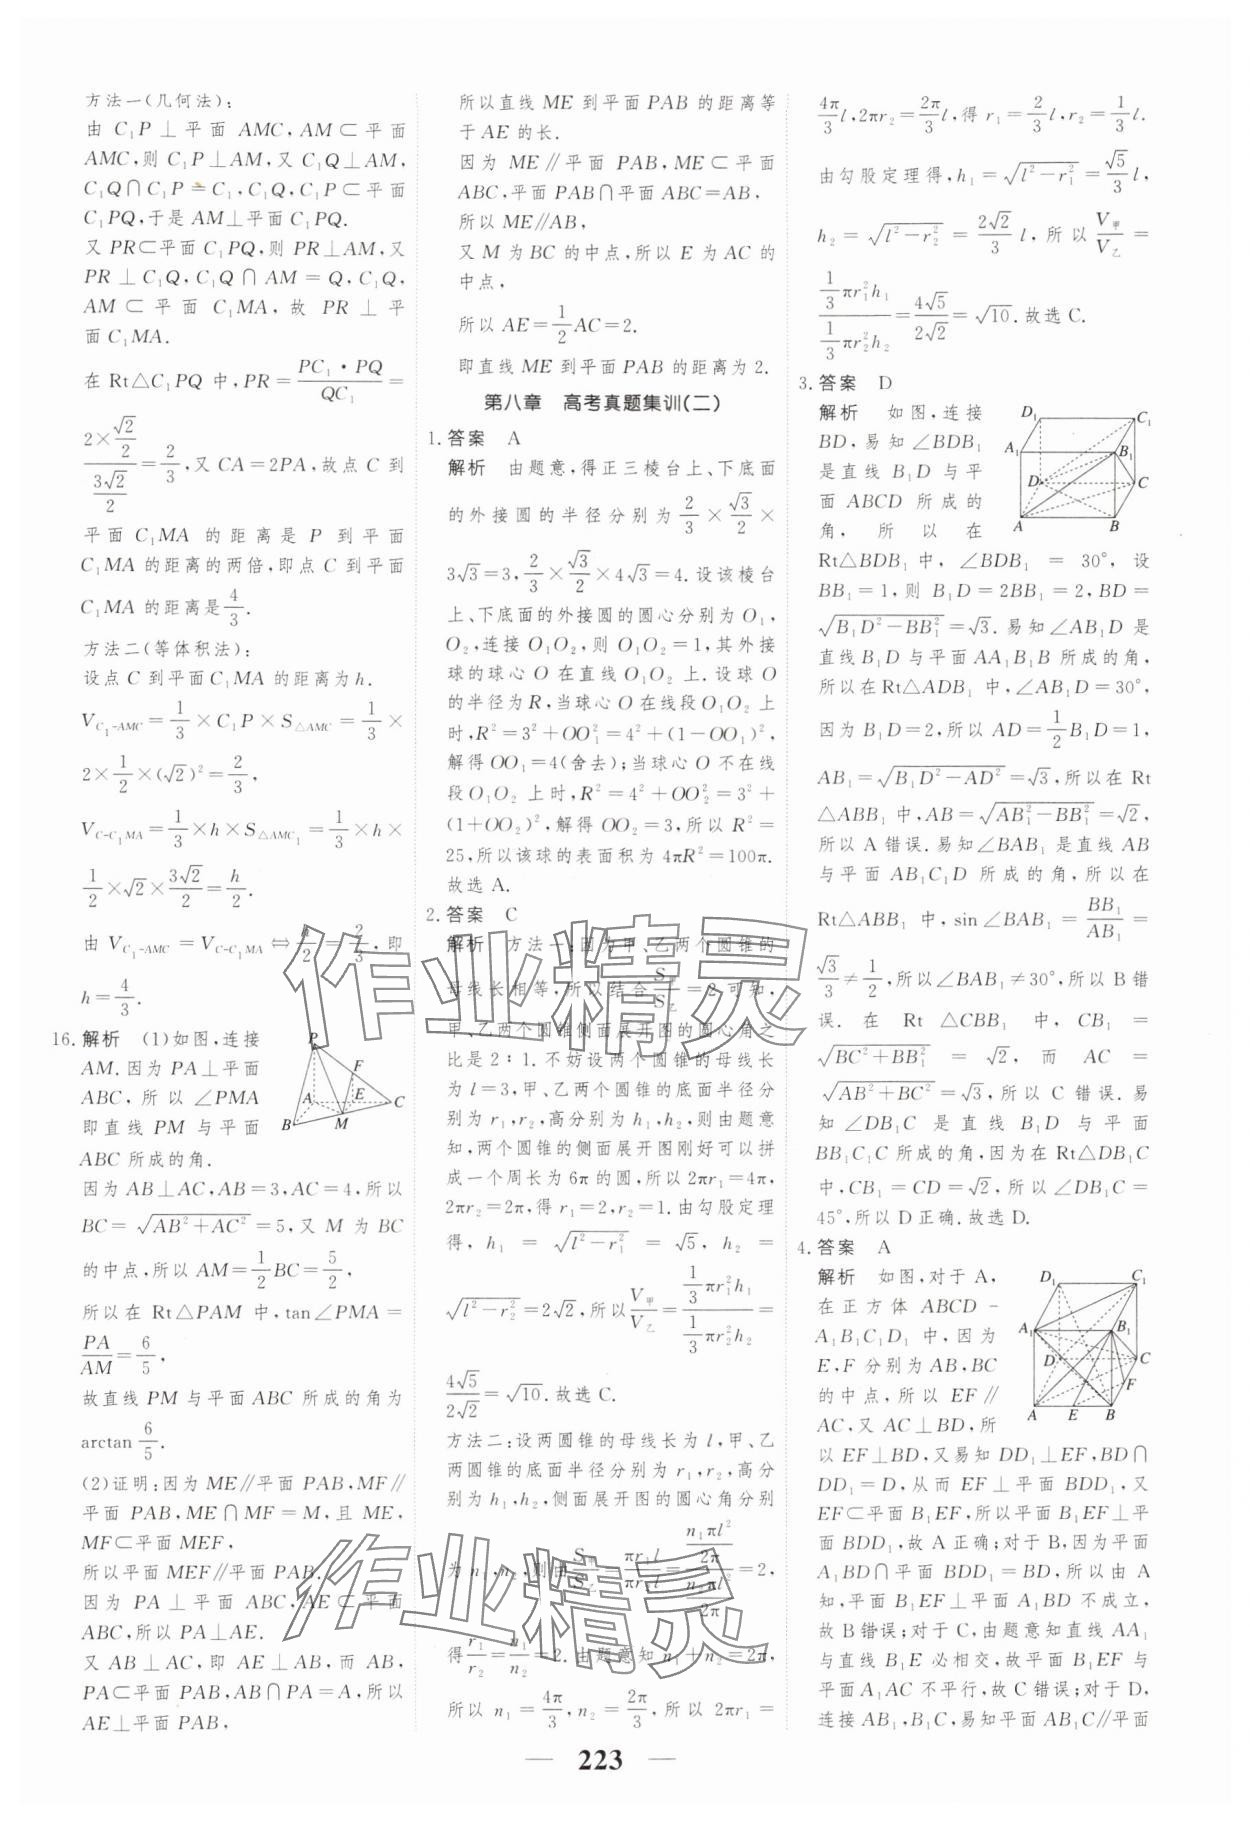 方法一(几何法):
由 C₁P⊥平面 AMC,AM⊂平面
AMC,则 C₁P⊥AM,又 C₁Q⊥AM,
C₁Q∩C₁P=C₁,C₁Q,C₁P⊂平面
C₁PQ,于是 AM⊥平面 C₁PQ.
又 PR⊂平面 C₁PQ,则 PR⊥AM,又
PR⊥C₁Q,C₁Q∩AM=Q,C₁Q,
AM⊂平面 C₁MA,故 PR⊥平
面 C₁MA.
在 Rt△C₁PQ 中,PR=(PC₁·PQ)/(QC₁)=
(2×(√2/2))/(3√2/2)=2/3,又 CA=2PA,故点 C 到
平面 C₁MA 的距离是 P 到平面
C₁MA 的距离的两倍,即点 C 到平面
C₁MA 的距离是4/3.
方法二(等体积法):
设点 C 到平面 C₁MA 的距离为 h.
V_{C₁-AMC}=1/3×C₁P×S_{△AMC}=1/3×
2×1/2×(√2)²=2/3,
V_{C-C₁MA}=1/3×h×S_{△AMC₁}=1/3×h×
1/2×√2×3√2/2=h/2.
由 V_{C₁-AMC}=V_{C-C₁MA}⇔h/2=2/3,即
h=4/3.
16. 解析 (1)如图,连接
AM.因为 PA⊥平面
ABC,所以∠PMA
即直线 PM 与平面
ABC 所成的角.
P
F
A
E
C
B
M
因为 AB⊥AC,AB=3,AC=4,所以
BC=√(AB²+AC²)=5,又 M 为 BC
的中点,所以 AM=1/2BC=5/2,
所以在 Rt△PAM 中,tan∠PMA=
PA/AM=6/5,
故直线 PM 与平面 ABC 所成的角为
arctan 6/5.
(2)证明:因为 ME∥平面 PAB,MF∥
平面 PAB,ME∩MF=M,且 ME,
MF⊂平面 MEF,
所以平面 MEF∥平面 PAB.
因为 PA⊥平面 ABC,AE⊂平面
ABC,所以 PA⊥AE.
又 AB⊥AC,即 AE⊥AB,而 AB,
PA⊂平面 PAB,AB∩PA=A,所以
AE⊥平面 PAB,
所以直线 ME 到平面 PAB 的距离等
于 AE 的长.
因为 ME∥平面 PAB,ME⊂平面
ABC,平面 PAB∩平面 ABC=AB,
所以 ME∥AB,
又 M 为 BC 的中点,所以 E 为 AC 的
中点,
所以 AE=1/2AC=2.
即直线 ME 到平面 PAB 的距离为 2.
第八章 高考真题集训(二)
1. 答案 A
解析 由题意,得正三棱台上、下底面
的外接圆的半径分别为2/3×√3/2×
3√3=3,2/3×√3/2×4√3=4.设该棱台
上、下底面的外接圆的圆心分别为 O₁,
O₂,连接 O₁O₂,则 O₁O₂=1,其外接
球的球心 O 在直线 O₁O₂ 上.设球 O
的半径为 R,当球心 O 在线段 O₁O₂ 上
时,R²=3²+OO₁²=4²+(1-OO₁)²,
解得 OO₁=4(舍去);当球心 O 不在线
段 O₁O₂ 上时,R²=4²+OO₂²=3²+
(1+OO₂)²,解得 OO₂=3,所以 R²=
25,所以该球的表面积为 4πR²=100π.
故选 A.
2. 答案 C
解析 方法一:因为甲、乙两个圆锥的
母线长相等,所以结合S甲/S乙=2可知,
甲、乙两个圆锥侧面展开图的圆心角之
比是 2∶1.不妨设两个圆锥的母线长
为 l=3,甲、乙两个圆锥的底面半径分
别为 r₁,r₂,高分别为 h₁,h₂,则由题意
知,两个圆锥的侧面展开图刚好可以拼
成一个周长为 6π 的圆,所以 2πr₁=4π,
2πr₂=2π,得 r₁=2,r₂=1.由勾股定理
得,h₁=√(l²-r₁²)=√5,h₂=
√(l²-r₂²)=2√2,所以V甲/V乙=(1/3πr₁²h₁)/(1/3πr₂²h₂)=
4√5/2√2=√10.故选 C.
方法二:设两圆锥的母线长为 l,甲、乙
两圆锥的底面半径分别为 r₁,r₂,高分
别为 h₁,h₂,侧面展开图的圆心角分别
为 n₁,n₂,则由S甲/S乙=πr₁l/πr₂l=(n₁πl²/2π)/(n₂πl²/2π)=2,
得r₁/r₂=n₁/n₂=2.由题意知 n₁+n₂=2π,
所以 n₁=4π/3,n₂=2π/3,所以 2πr₁=
4π/3 l,2πr₂=2π/3 l,得 r₁=2/3 l,r₂=1/3 l.
由勾股定理得,h₁=√(l²-r₁²)=√5/3 l,
h₂=√(l²-r₂²)=2√2/3 l,所以V甲/V乙=
(1/3πr₁²h₁)/(1/3πr₂²h₂)=4√5/2√2=√10.故选 C.
3. 答案 D
解析 如图,连接
BD,易知∠BDB₁
是直线 B₁D 与平
面 ABCD 所成的
角,所以在
D₁
C₁
A₁
B₁
D
C
A
B
Rt△BDB₁ 中,∠BDB₁=30°,设
BB₁=1,则 B₁D=2BB₁=2,BD=
√(B₁D²-BB₁²)=√3.易知∠AB₁D 是
直线 B₁D 与平面 AA₁B₁B 所成的角,
所以在Rt△ADB₁ 中,∠AB₁D=30°,
因为 B₁D=2,所以 AD=1/2B₁D=1,
AB₁=√(B₁D²-AD²)=√3,所以在 Rt
△ABB₁ 中,AB=√(AB₁²-BB₁²)=√2,
所以 A 错误.易知∠BAB₁ 是直线 AB
与平面 AB₁C₁D 所成的角,所以在
Rt△ABB₁ 中,sin∠BAB₁=BB₁/AB₁=
√3/3≠1/2,所以∠BAB₁≠30°,所以 B 错
误.在 Rt△CBB₁ 中,CB₁=
√(BC²+BB₁²)=√2,而 AC=
√(AB²+BC²)=√3,所以 C 错误.易
知∠DB₁C 是直线 B₁D 与平面
BB₁C₁C 所成的角,因为在 Rt△DB₁C
中,CB₁=CD=√2,所以∠DB₁C=
45°,所以 D 正确.故选 D.
4. 答案 A
解析 如图,对于 A,
在正方体 ABCD-
A₁B₁C₁D₁ 中,因为
E,F 分别为 AB,BC
的中点,所以 EF∥
AC,又 AC⊥BD,所
D₁
C₁
A₁
B₁
D
C
F
A
E
B
以 EF⊥BD,又易知 DD₁⊥EF,BD∩
DD₁=D,从而 EF⊥平面 BDD₁,又
EF⊂平面 B₁EF,所以平面 B₁EF⊥平
面 BDD₁,故 A 正确;对于 B,因为平面
A₁BD∩平面 BDD₁=BD,所以由 A
知,平面 B₁EF⊥平面 A₁BD 不成立,
故 B错误;对于 C,由题意知直线 AA₁
与直线 B₁E 必相交,故平面 B₁EF 与
平面 A₁AC 不平行,故 C 错误;对于 D,
连接 AB₁,B₁C,易知平面 AB₁C∥平面
作业精灵
作业精灵
— 223 —